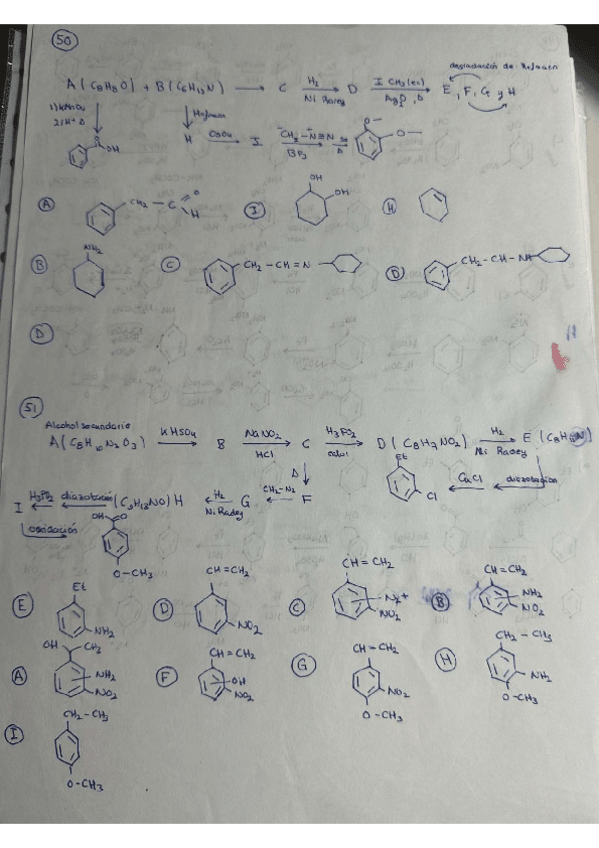 50
degradación de Hofmann
A (C8H8O) + B (C6H13N) → C H2 Ni Raney → D 1 CH3I(ex) Ag2O, Δ → E, F, G y H
1) KMnO4
2) H+ Δ
Hofmann
OH
H OsO4 → I CH2-N≡N BF3
A CH2 - C H O
I OH OH
H
B NH2
C CH2-CH=N
D CH2-CH-NH
D
51
Alcohol secundario
A (C8H10N2O3) KHSO4 → B NaNO2 HCl → C H3PO2 calor → D (C8H7NO2) H2 Ni Raney → E (C8H11N)
Et
Cl
CuCl
diazotación
Δ
I H3PO2 diazotación (C9H13NO) H H2 Ni Raney G CH2-N2 F
oxidación
OH O
O-CH3
E Et NH2
D CH=CH2 NO2
C CH=CH2 N2+ NO2
B CH=CH2 NH2 NO2
A OH CH3 NH2 NO2
F CH=CH2 OH NO2
G CH-CH2 NO2 O-CH3
H CH2-CH3 NH2 O-CH3
I CH2-CH3 O-CH3